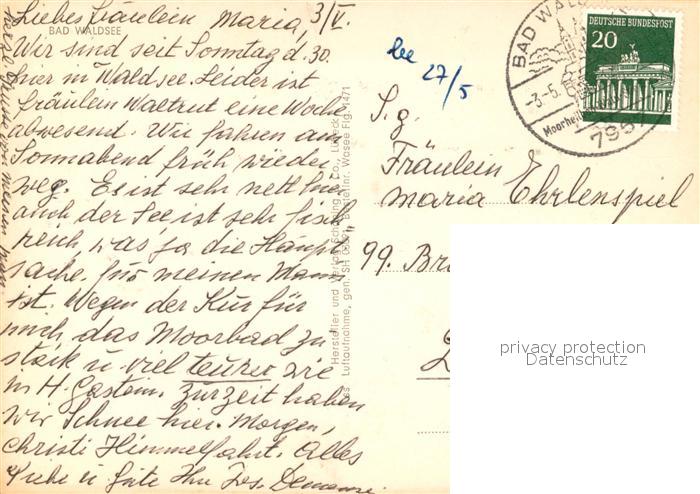 Liebes Fräulein Maria, 3/V.
BAD WALDSEE
Wir sind seit Sonntag d. 30.
hier in Waldsee. Leider ist
Fräulein Waltrut eine Woche
abwesend. Wir fahren am
Sonnabend früh wieder
weg. Es ist sehr nett hier
auch der See ist sehr fisch
reich, was ja die Haupt
sache für meinen Mann
ist. Wegen der Kur für
mich, das Moorbad zu
stark u viel teurer wie
in H. Gastein. Zur Zeit haben
wir Schnee hier. Morgen,
Christi Himmelfahrt. Alles
Liebe u Gute Ihr
von meinem
Hersteller und Verlag Schöning & Co., Lübeck
Luftaufnahme, gen. SH Bestellnr. Wasee Fig. 1471
27/5
S. g.
Fräulein
Maria Ehrlenspiel
99. Br
BAD WALD
-3.-5.
Moorheil
795
DEUTSCHE BUNDESPOST
20
privacy protection
Datenschutz